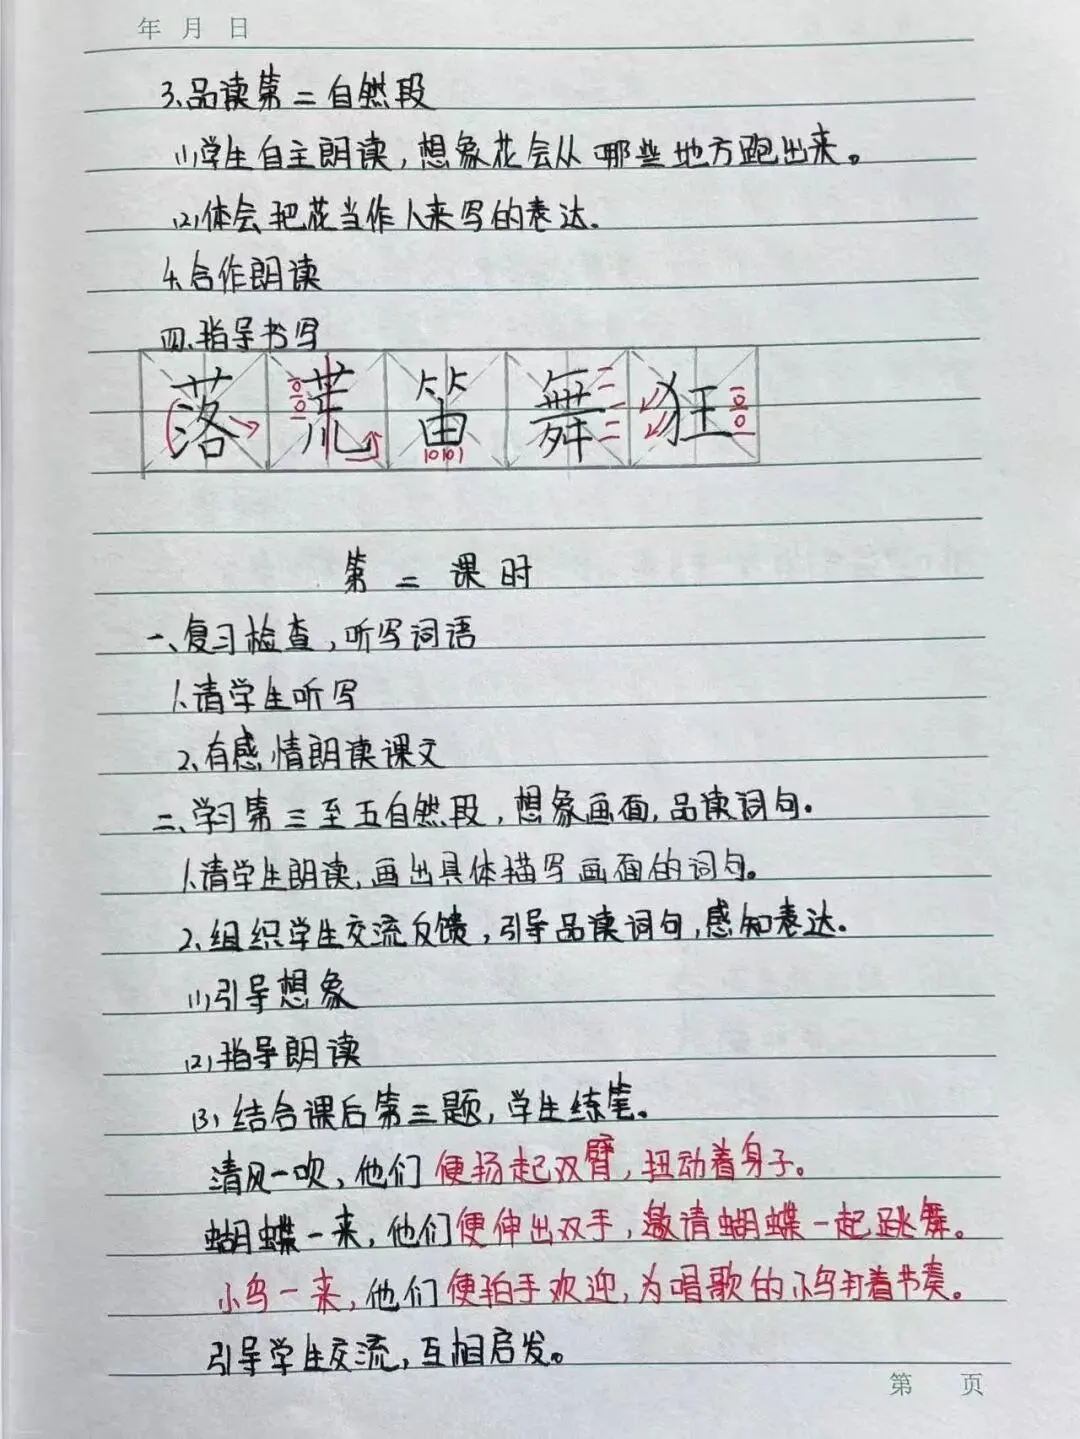 年 月 日
3、品读第二自然段
(1)学生自主朗读，想象花会从哪些地方跑出来。
(2)体会把花当作人来写的表达。
4、合作朗读
四、指导书写
落 荒 笛 舞 狂
第二课时
一、复习检查，听写词语
1、请学生听写
2、有感情朗读课文
二、学习第三至五自然段，想象画面，品读词句。
1、请学生朗读，画出具体描写画面的词句。
2、组织学生交流反馈，引导品读词句，感知表达。
(1)引导想象
(2)指导朗读
(3)结合课后第三题，学生练笔。
清风一吹，他们便扬起双臂，扭动着身子。
蝴蝶一来，他们便伸出双手，邀请蝴蝶一起跳舞。
小鸟一来，他们便拍手欢迎，为唱歌的小鸟打着节奏。
引导学生交流，互相启发。
第 页